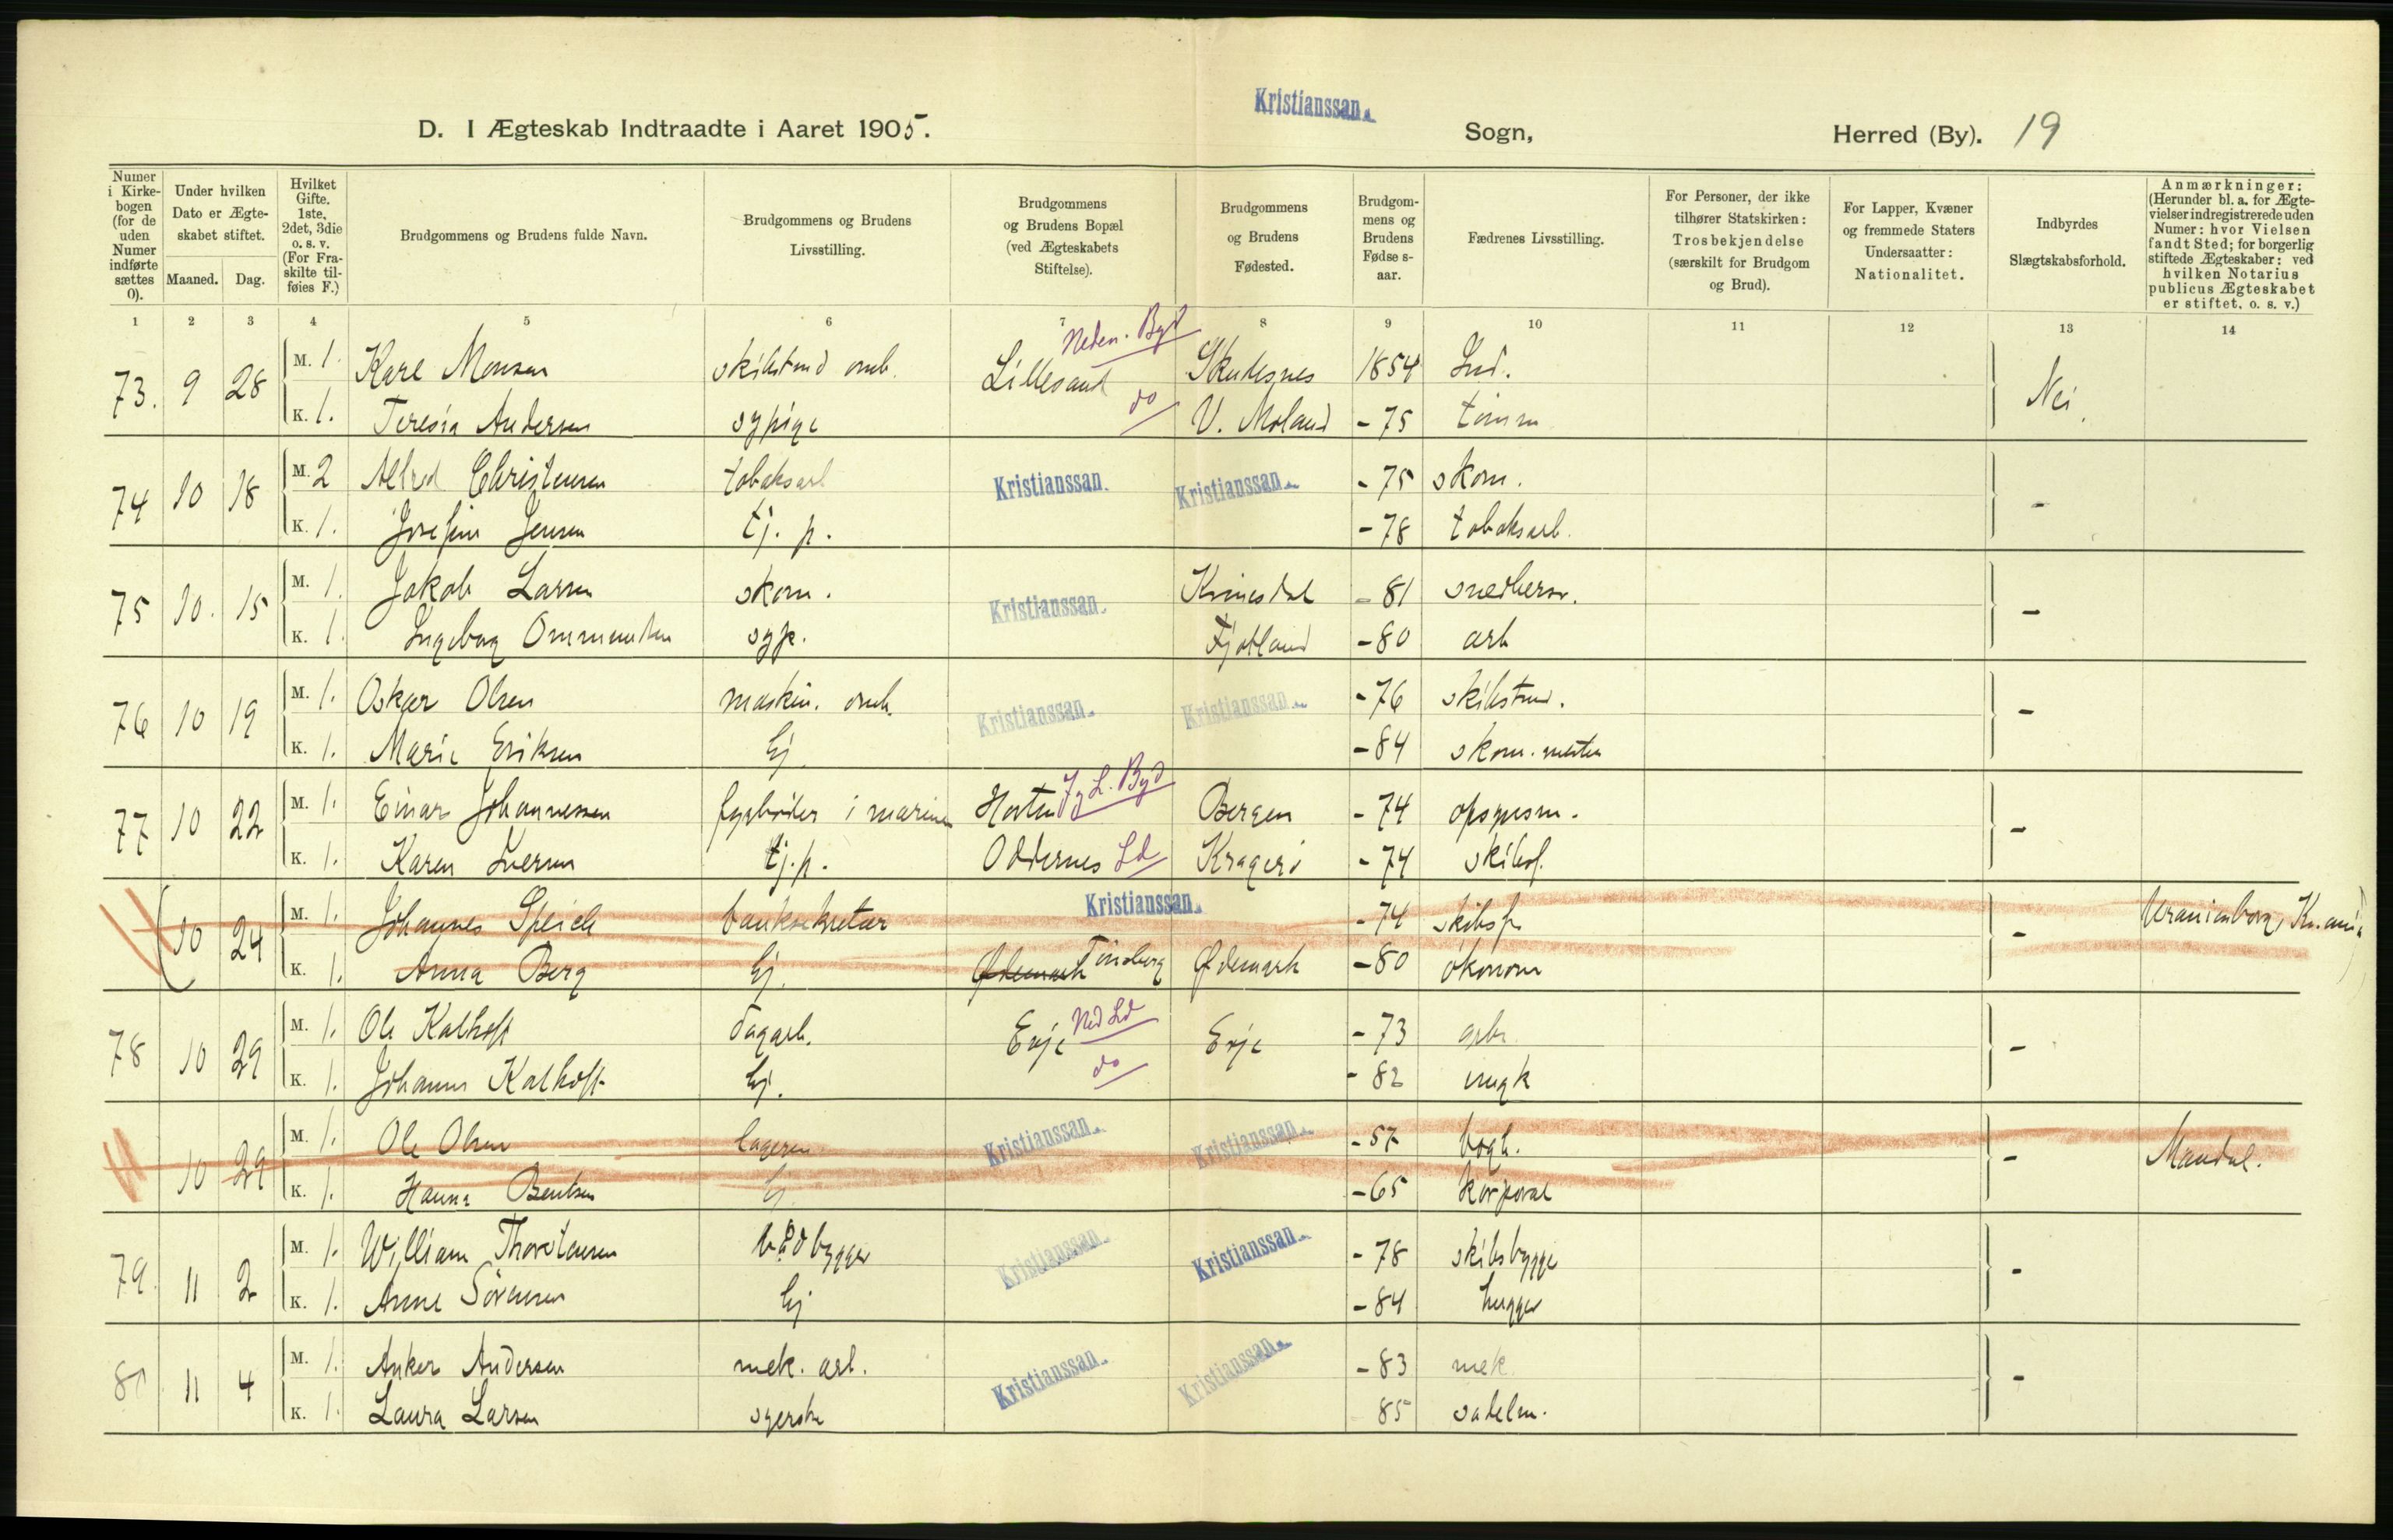 Kristianssan
D. I Ægteskab Indtraadte i Aaret 1905. Sogn, Herred (By). 19
Numer i Kirkebogen (for de uden Numer indførte sættes 0).
Under hvilken Dato er Ægteskabet stiftet.
Maaned. Dag.
Hvilket Gifte. 1ste, 2det, 3die o. s. v. (For Fraskilte tilføies F.)
Brudgommens og Brudens fulde Navn.
Brudgommens og Brudens Livsstilling.
Brudgommens og Brudens Bopæl (ved Ægteskabets Stiftelse).
Brudgommens og Brudens Fødested.
Brudgommens og Brudens Fødselsaar.
Fædrenes Livsstilling.
For Personer, der ikke tilhører Statskirken: Trosbekjendelse (særskilt for Brudgom og Brud).
For Lapper, Kvæner og fremmede Staters Undersaatter: Nationalitet.
Indbyrdes Slægtskabsforhold.
Anmærkninger: (Herunder bl. a. for Ægtevielser indregistrerede uden Numer: hvor Vielsen fandt Sted; for borgerlig stiftede Ægteskaber: ved hvilken Notarius publicus Ægteskabet er stiftet, o. s. v.)
1 2 3 4 5 6 7 8 9 10 11 12 13 14
Neden. Byd
73. 9 28 M. 1. Karl Monsen skibstmd Lillesand Skudesnes 1854 Nei
K. 1. Teresia Andersen sypige do V. Moland - 75 tømm
74 10 18 M. 2 Alfred Christensen tobaksarb Kristianssan Kristianssan - 75 skom. -
K. 1. Josefine Jensen tj. p. - 78 tobaksarb.
75 10. 15 M. 1. Jakob Larsen skom. Kristianssan Kvinesdal - 81 -
K. 1. Ingeborg Ommundsen syp. Fjotland - 80 arb
76 10 19 M. 1. Oskar Olsen maskin. Kristianssan Kristianssan - 76 skibstmd. -
K. 1. Marie Eriksen Ej - 84 skom. mester
77 10 22 M. 1. Einar Johannessen fyrbøder i marinen Horten J L. Byd Bergen - 74 opsynsm. -
K. 1. Karen Iversen tj. p. Oddernes Ld Kragerø - 74 skibsf.
10 24 M. 1. Johannes Speich banksekretær Kristianssan - 74 skibsf. - Uranienborg, Kr.ania
K. 1. Anna Berg Ej. Ødemark Tønsberg Ødemark - 80 økonom
78 10 29 M. 1. Ole Kalhoft dagarb. Evje Ned Ld Evje - 73 gbr -
K. 1. Johanne Kalhoft Ej. do - 82
10 29 M. 1. Ole Olsen Kristianssan Kristianssan - 57 bogh. - Mandal.
K. 1. Hanna Bentsen Ej - 65 korporal
79. 11 2 M. 1. William Thorstensen bådbygger Kristianssan Kristianssan - 78 skibsbygge -
K. 1. Anne Sørensen Ej - 84 hugger
80 11 4 M. 1. Anker Andersen mek. arb. Kristianssan Kristianssan - 83 mek. -
K. 1. Laura Larsen syerske 85 sadelm.